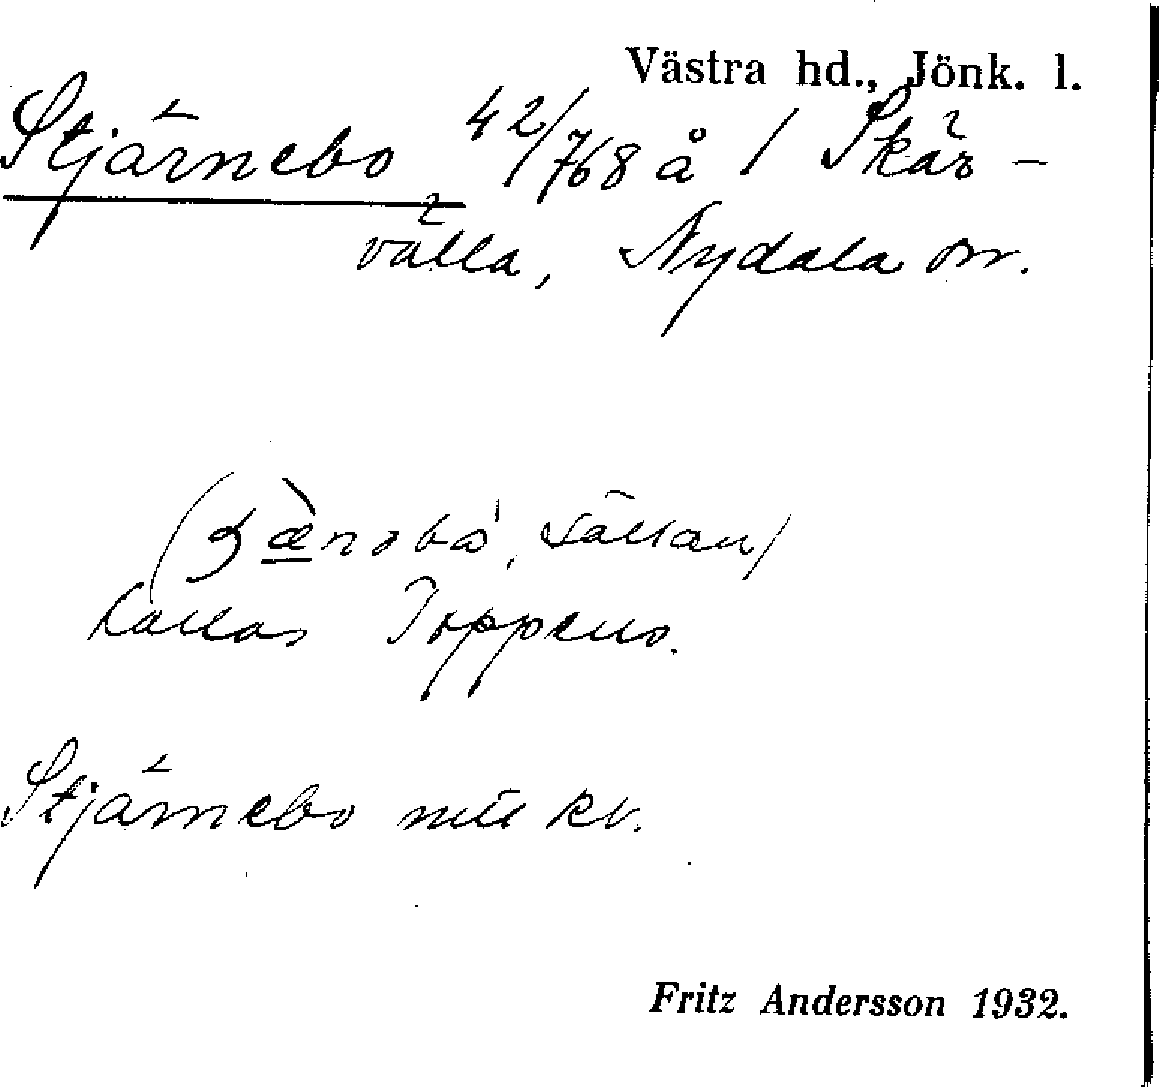 Västra hd., Jönk. l.
Stjärnebo 42/768 å 1 Skär-
välla, Nydala sn.
sällan)
kallas Toppens.
Stjärnebo mtl kv.
Fritz Andersson 1932.